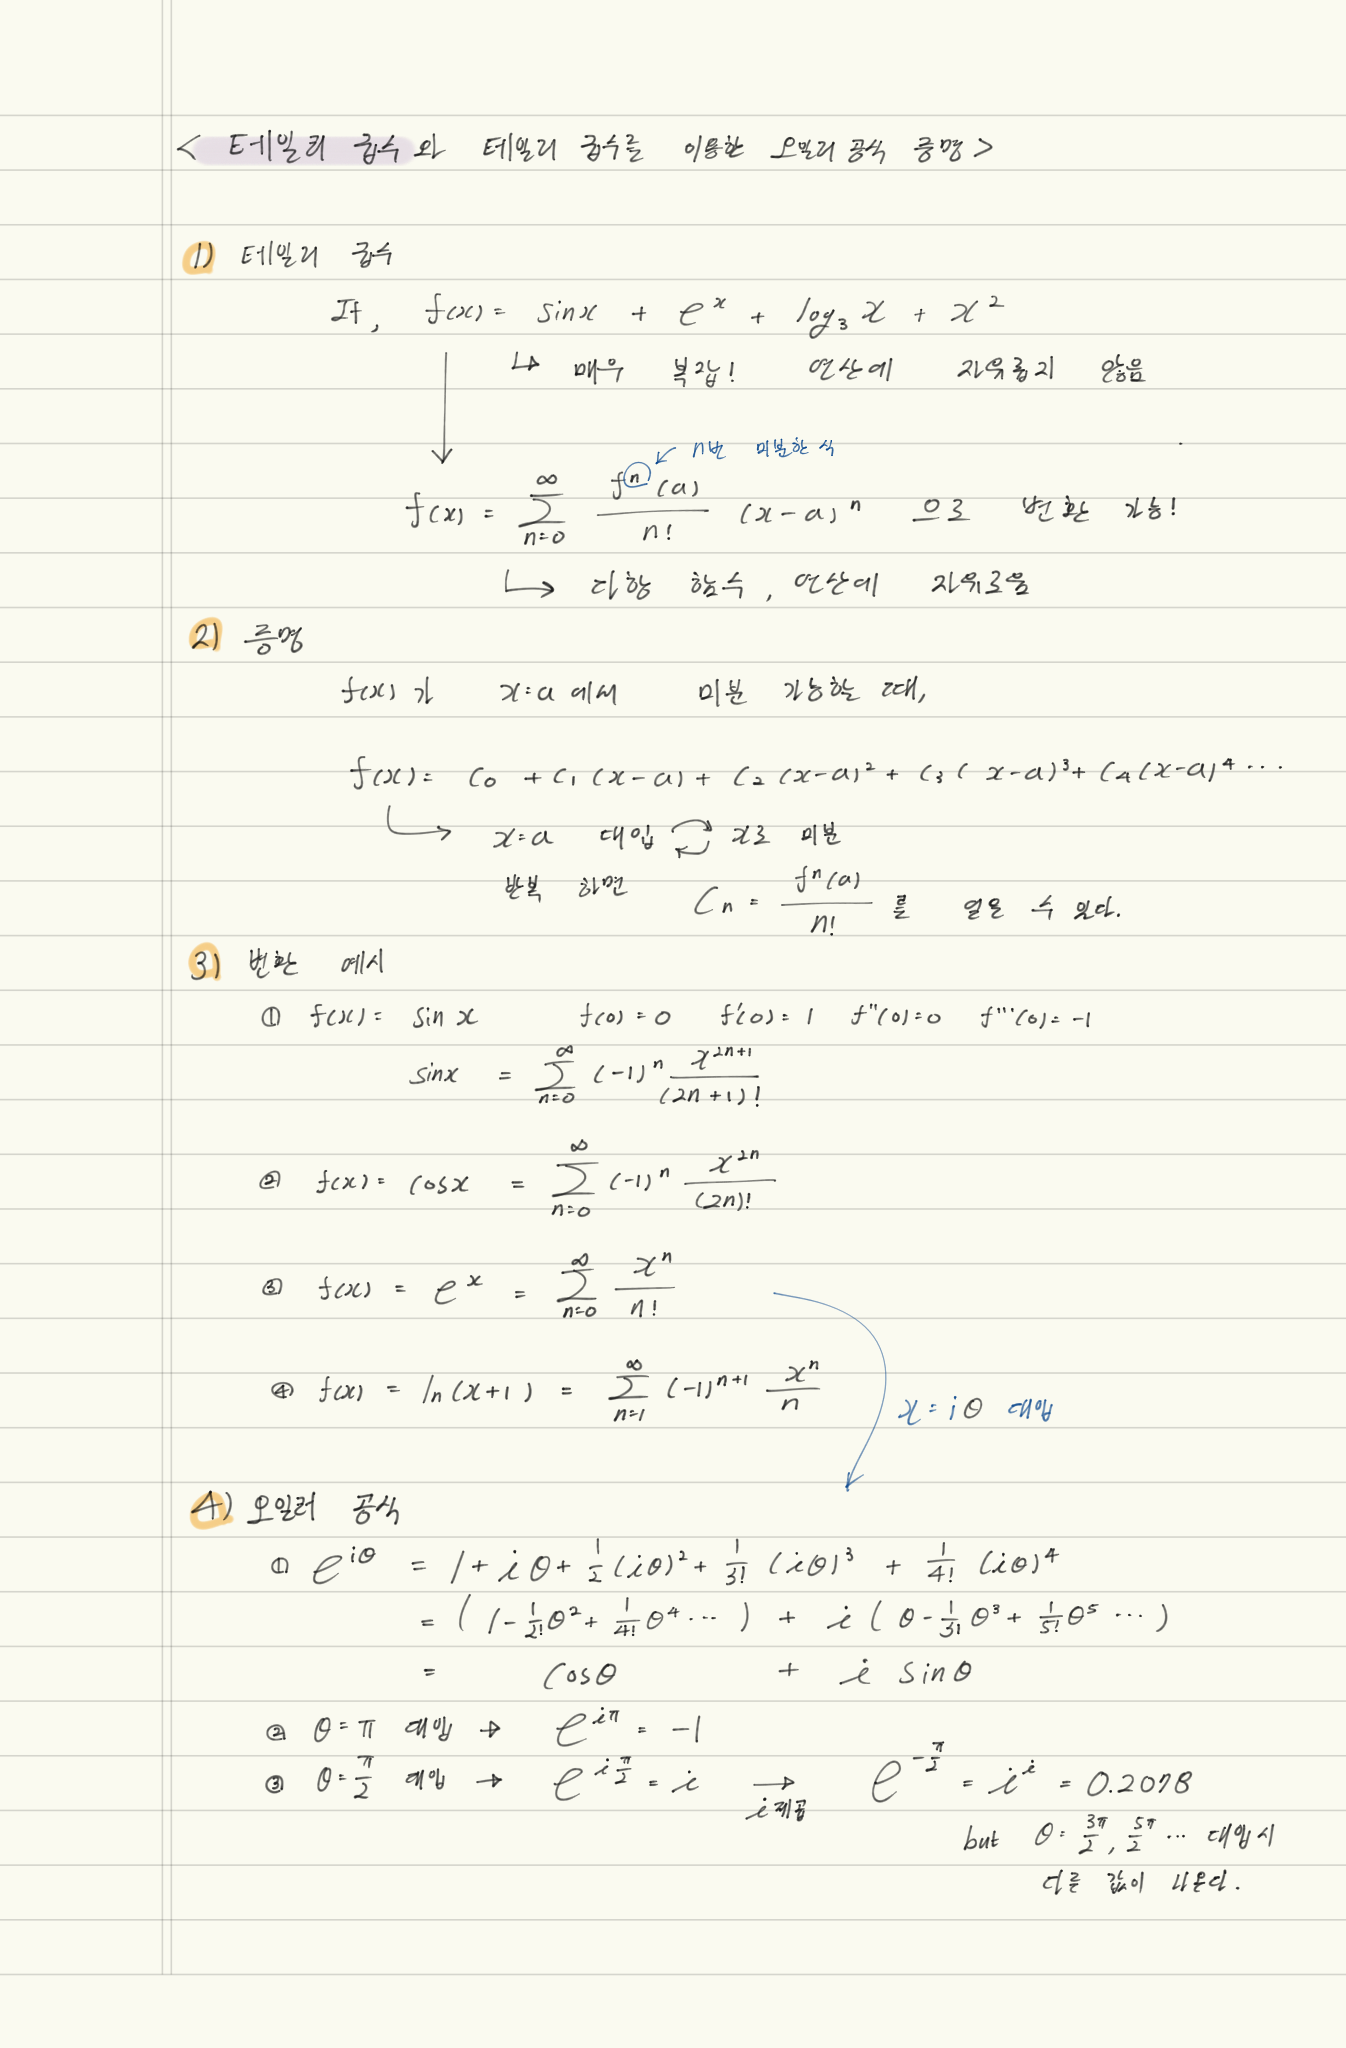 < 테일러 급수와 테일러 급수를 이용한 오일러 공식 증명 >
1) 테일러 급수
If, f(x) = sinx + e^x + log₃x + x²
↳ 매우 복잡! 연산에 자유롭지 않음
← n번 미분한 식
f(x) = ∑_{n=0}^{∞} fⁿ(a)/n! (x-a)ⁿ 으로 변환 가능!
↳ 다항 함수, 연산에 자유로움
2) 증명
f(x)가 x=a에서 미분 가능할 때,
f(x) = C₀ + C₁(x-a) + C₂(x-a)² + C₃(x-a)³ + C₄(x-a)⁴ ···
↳ x=a 대입 ⇄ x로 미분
반복 하면 Cₙ = fⁿ(a)/n! 를 얻을 수 있다.
3) 변환 예시
① f(x) = sin x f(0) = 0 f'(0) = 1 f''(0) = 0 f'''(0) = -1
sinx = ∑_{n=0}^{∞} (-1)ⁿ x^{2n+1}/(2n+1)!
② f(x) = cosx = ∑_{n=0}^{∞} (-1)ⁿ x^{2n}/(2n)!
③ f(x) = e^x = ∑_{n=0}^{∞} xⁿ/n!
④ f(x) = ln(x+1) = ∑_{n=1}^{∞} (-1)^{n+1} xⁿ/n
x = iθ 대입
4) 오일러 공식
① e^{iθ} = 1 + iθ + 1/2 (iθ)² + 1/3! (iθ)³ + 1/4! (iθ)⁴
= (1 - 1/2! θ² + 1/4! θ⁴ ···) + i (θ - 1/3! θ³ + 1/5! θ⁵ ···)
= cosθ + i sinθ
② θ = π 대입 → e^{iπ} = -1
③ θ = π/2 대입 → e^{iπ/2} = i → i제곱 e^{-π/2} = i^i = 0.2078
but θ = 3π/2, 5π/2 ··· 대입시
다른 값이 나온다.